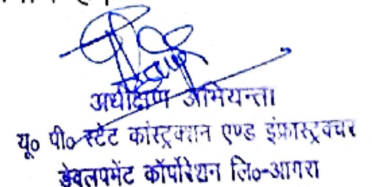 अधीक्षण अभियन्ता
यू० पी० स्टेट कांस्ट्रक्शन एण्ड इंफ्रास्ट्रक्चर
डेवलपमेंट कॉर्पोरेशन लि०-आगरा